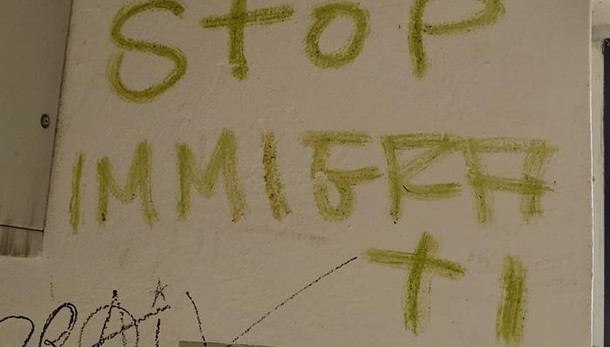 StOP
IMMIGRA
TI